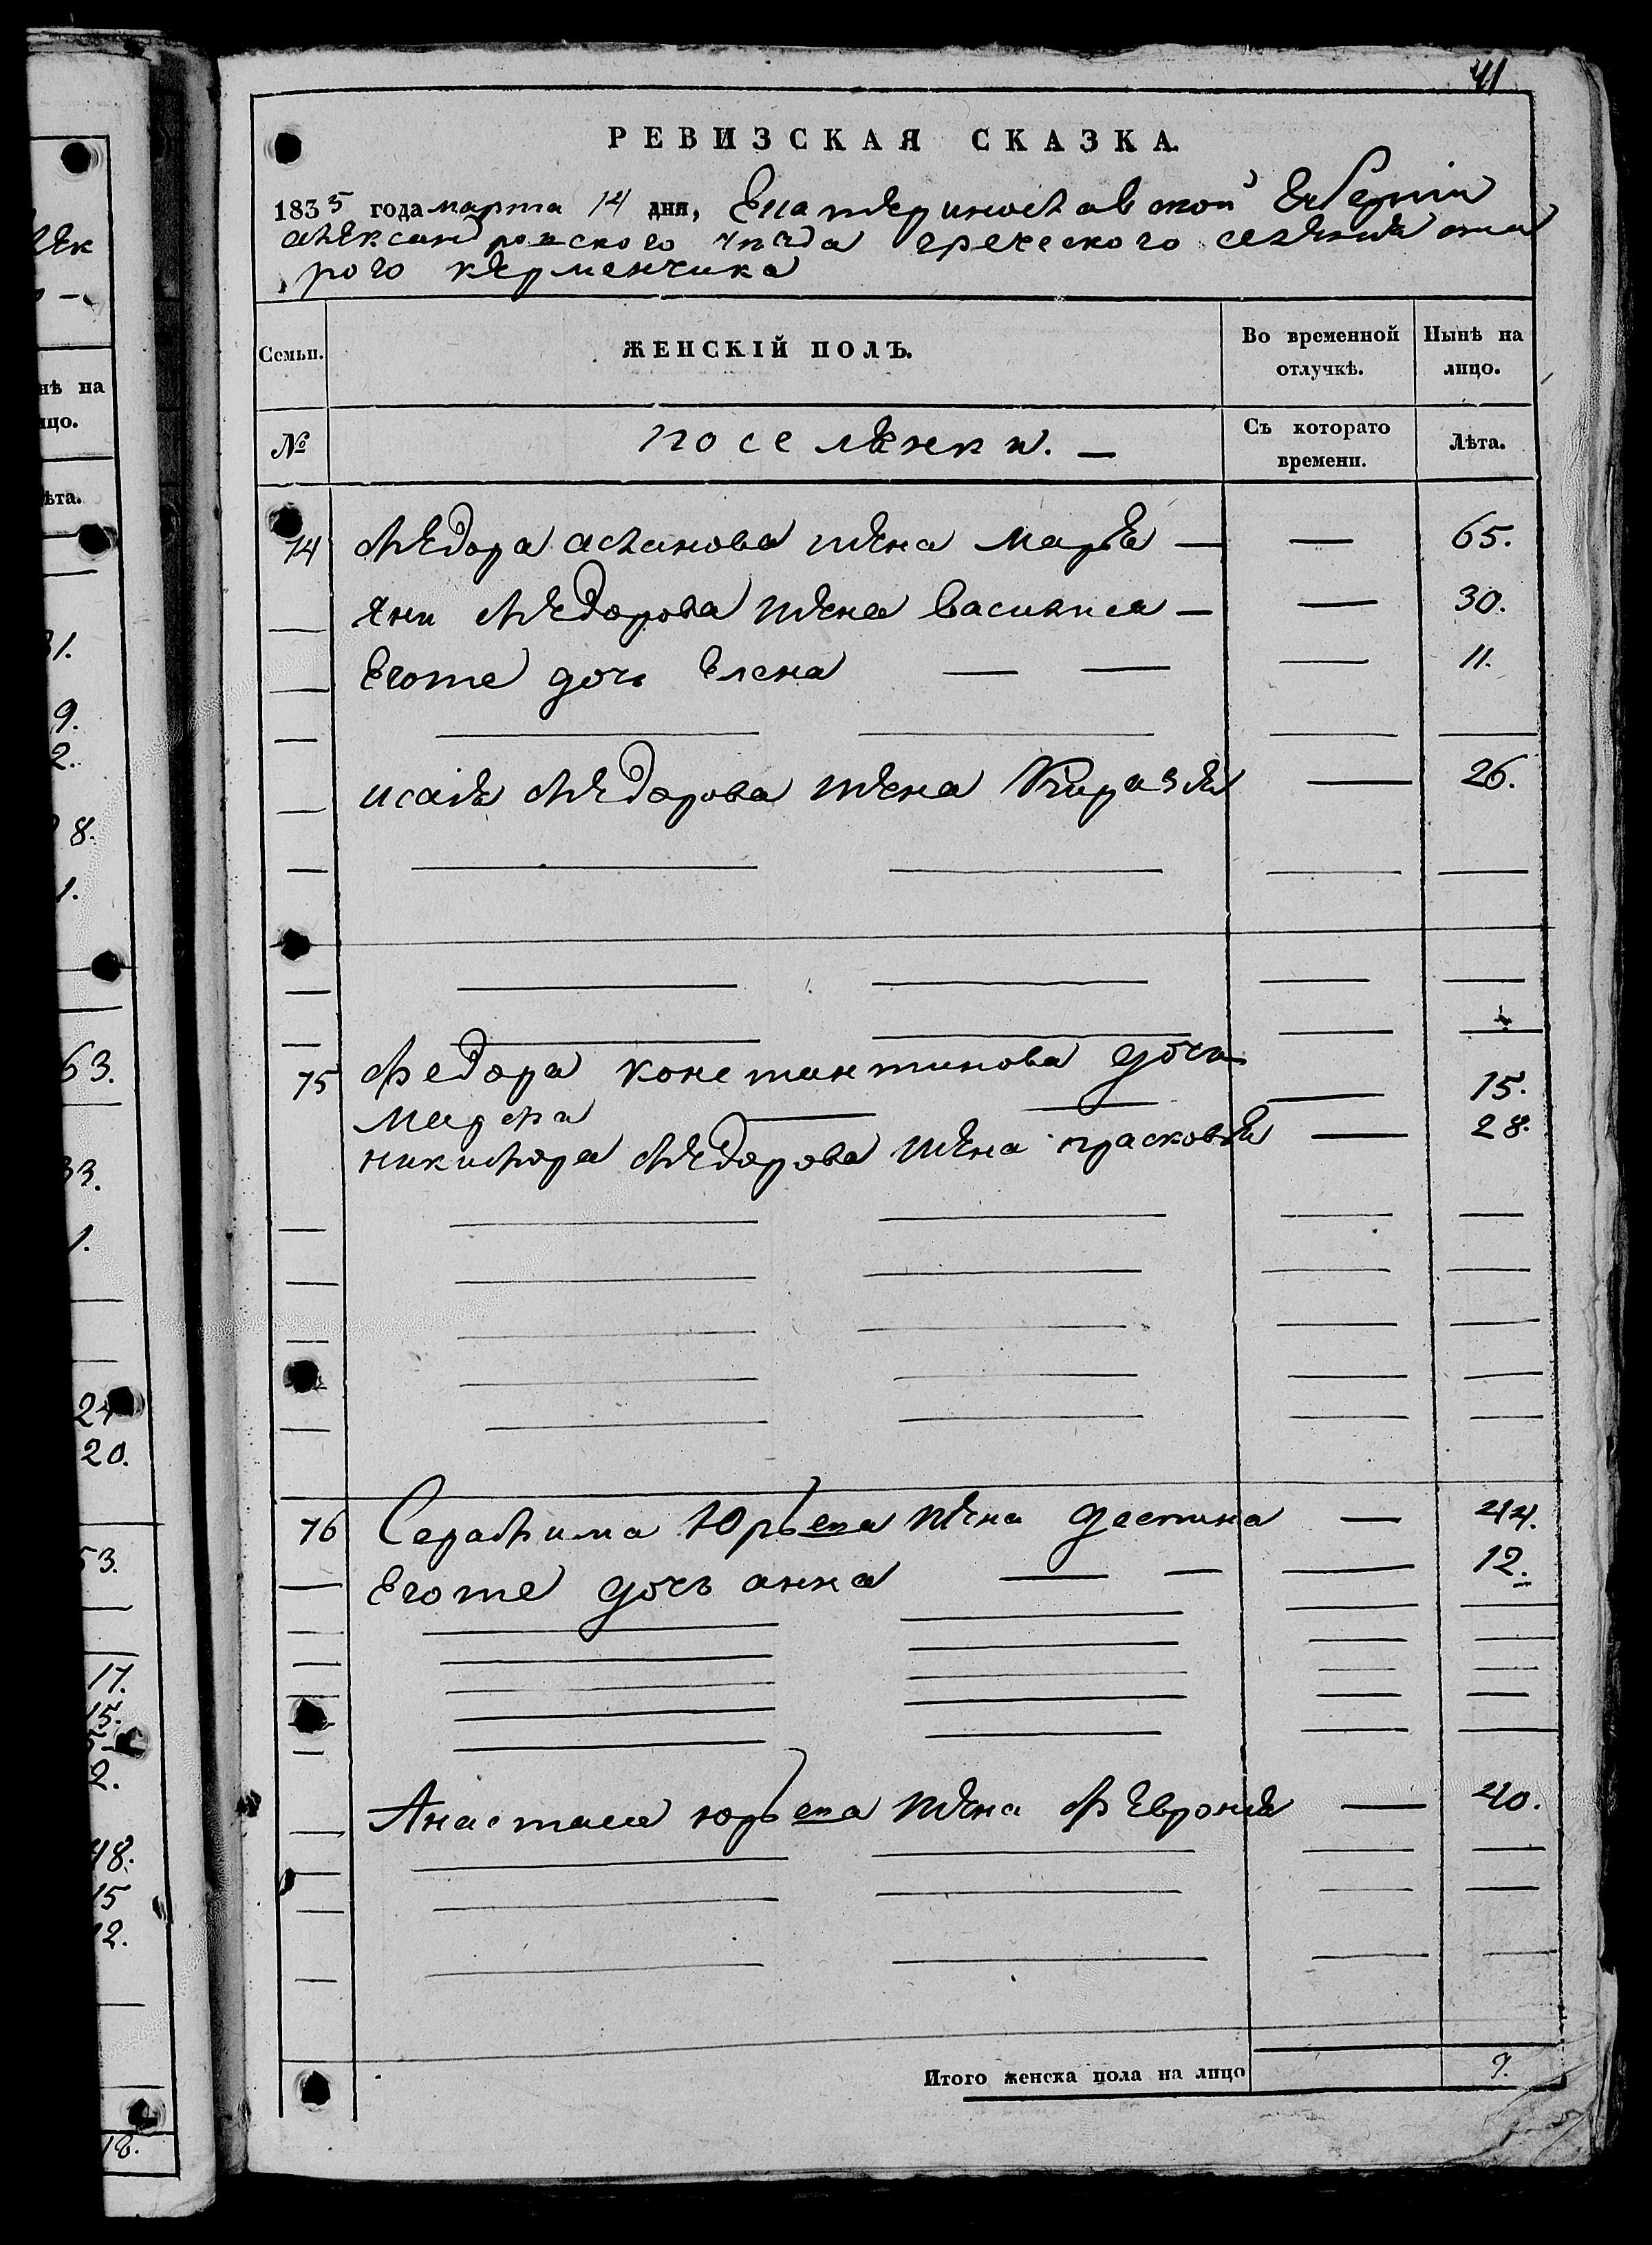 41
РЕВИЗСКАЯ СКАЗКА.
1835 года марта 14 дня, Екатеринославской губерніи
александровского уѣзда греческого селенія ста
рого керменчика
Семьи.
ЖЕНСКІЙ ПОЛЪ.
Во временной отлучкѣ.
Нынѣ на лицо.
№
поселянки. —
Съ которато времени.
Лѣта.
74 Федора асланова жена марья — — 65.
— Яни Федорова жена василиса — — 30.
— Егоже дочь Елена — — — 11.
— исаія Федорова жена Киразия — 26.
75 Федора константинова дочь
марфа — — — 15.
никифора Федорова жена прасковья — 28.
76 Серафима Юрьева жена деспина — 44.
— Егоже дочь анна — — — 12.
— Анастаса юрьева жена Феврония — 40.
Итого женска пола на лицо 9.
нѣ на
цо.
ѣта.
31.
9.
2.
8.
1.
63.
33.
1.
24
20.
53.
17.
15.
2.
48.
15
12.
18.